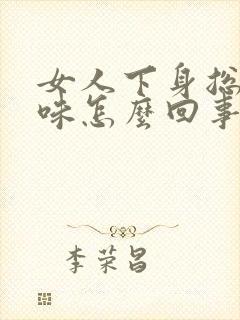 女人下身总
味怎麽回事
李荣昌